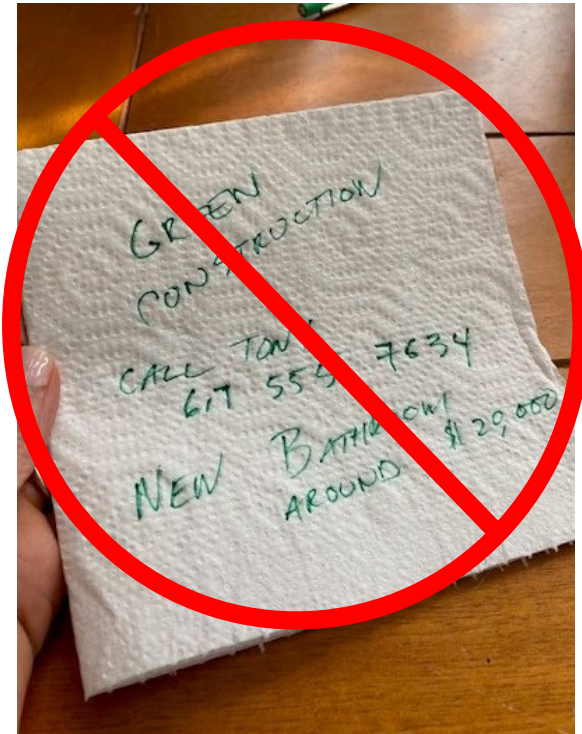 GREEN
CONSTRUCTION
CALL TONY
617 555 7634
NEW BATHROOM
AROUND $20,000